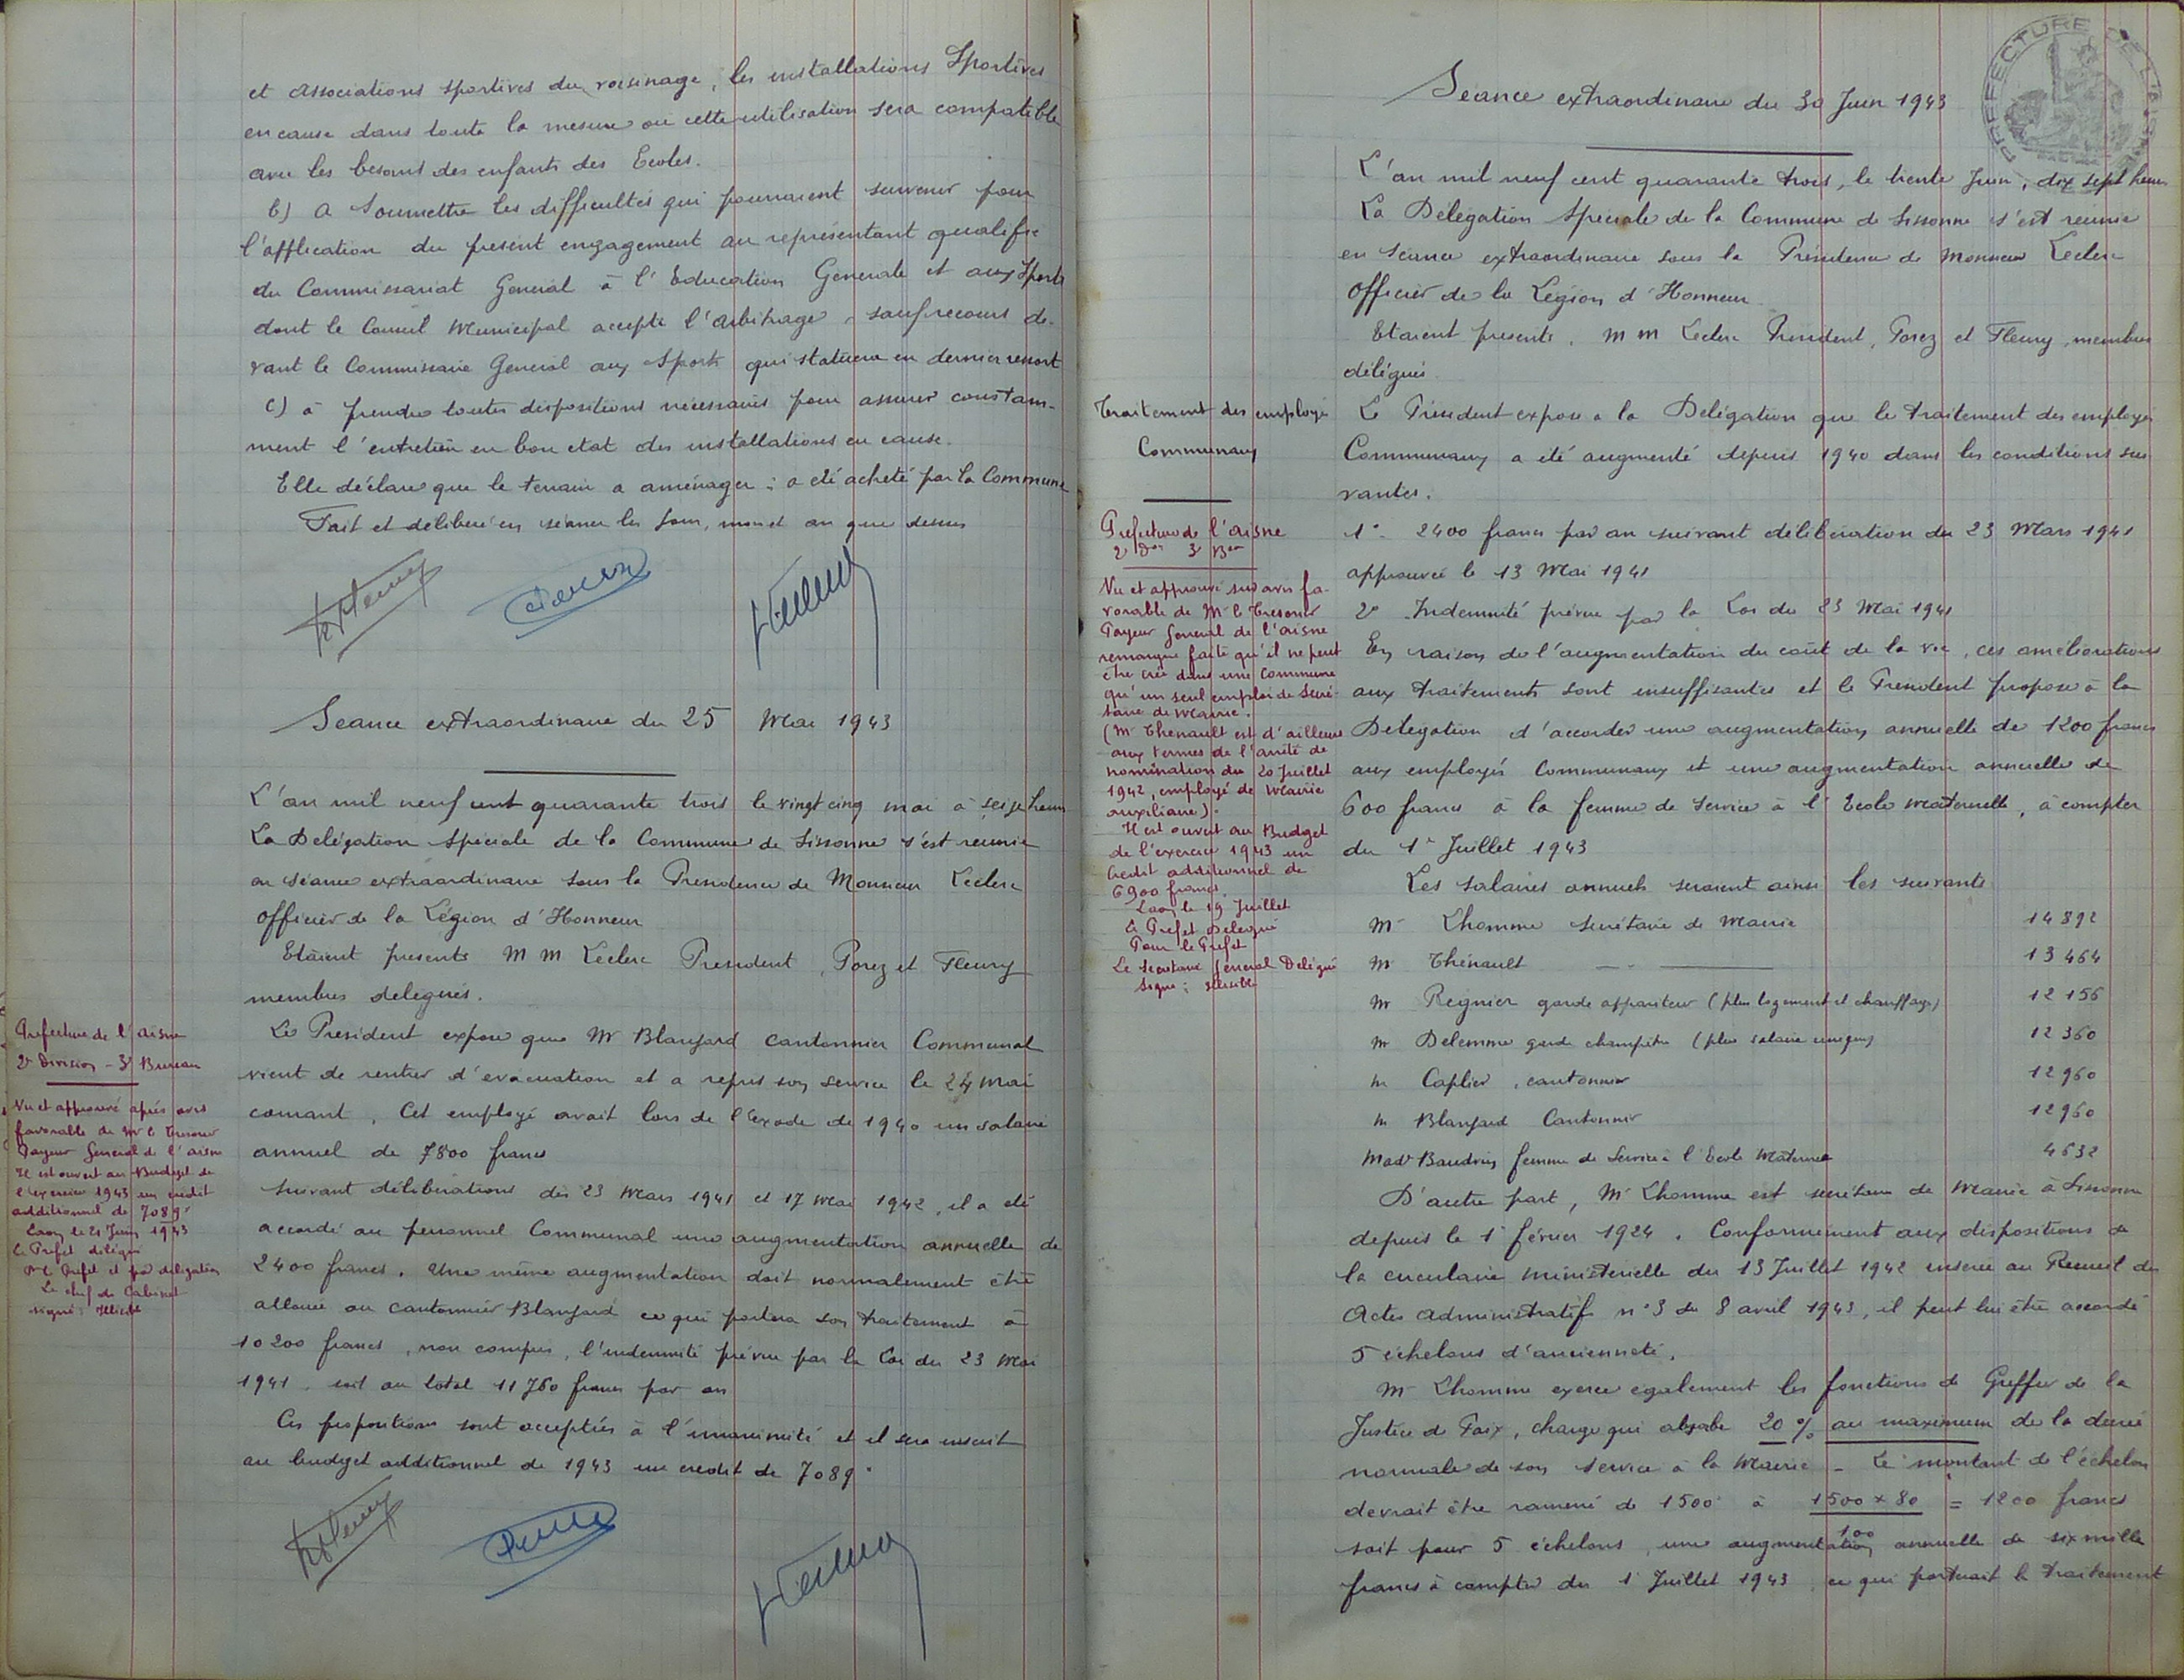 et associations sportives du voisinage, les installations Sportives
en cause dans toute la mesure où cette utilisation sera compatible
avec les besoins des enfants des Ecoles.
b) a Soumettre les difficultés qui pourraient survenir pour
l'application du présent engagement au représentant qualifié
du Commissariat Général à l'Education Generale et aux Sports
dont le Conseil Municipal accepte l'arbitrage, sauf recours de-
vant le Commissaire General aux Sports qui statuera en dernier ressort
c) à prendre toutes dispositions nécessaires pour assurer constam-
ment l'entretien en bon etat des installations en cause.
Elle déclare que le terrain a aménager : a été acheté par la Commune
Fait et délibéré en séance les jour, mois et an que dessus
Seance extraordinaire du 25 Mai 1943
L'an mil neuf cent quarante trois le vingt cinq mai à seize heures
La Delégation Spéciale de la Commune de Sissonne s'est reunie
en séance extraordinaire sous la Presidence de Monsieur Leclerc
Officier de la Légion d'Honneur
Etaient presents M M Leclerc President, Porez et Fleury
membres delegués.
Prefecture de l'Aisne
2e Division - 3e Bureau
Vu et approuvé après avis
favorable de Mr le Tresorier
Payeur General de l'Aisne
Il est ouvert au Budget de
l'exercice 1943 un credit
additionnel de 7089f
Laon le 21 Juin 1943
le Prefet délégué
Pr le Prefet et par délégation
Le chef de Cabinet
signé : Illisible
Le President expose que Mr Blanjard cantonnier Communal
vient de rentrer d'evacuation et a repris son service le 24 Mai
courant. Cet employé avait lors de l'exode de 1940 un salaire
annuel de 7800 francs
Suivant délibérations des 23 Mars 1941 et 17 Mai 1942, il a été
accordé au personnel Communal une augmentation annuelle de
2400 francs. Une même augmentation doit normalement être
allouée au cantonnier Blanjard ce qui portera son traitement à
10200 francs, non compris, l'indemnité prévue par la Loi du 23 Mai
1941, soit au total 11760 francs par an
Ces propositions sont acceptées à l'unanimité et il sera inscrit
au budget additionnel de 1943 un credit de 7089f
PREFECTURE DE L'AISNE
Séance extraordinaire du 30 Juin 1943
L'an mil neuf cent quarante trois, le trente Juin, dix sept heures
La Délégation Spéciale de la Commune de Sissonne s'est réunie
en Séance extraordinaire sous la Présidence de Monsieur Leclerc
Officier de la Légion d'Honneur
Etaient présents, M M Leclerc President, Porez et Fleury, membres
délégués.
Traitement des employés
Communaux
Prefecture de l'Aisne
2e Don 3e Bau
Vu et approuvé sur avis fa-
vorable de Mr le Tresorier
Payeur General de l'Aisne
remarque faite qu'il ne peut
être créé dans une Commune
qu'un seul emploi de Secré-
taire de Mairie.
(Mr Thenault est d'ailleurs
aux termes de l'arrêté de
nomination du 20 Juillet
1942, employé de Mairie
auxiliaire).
Il est ouvert au Budget
de l'exercice 1943 un
credit additionnel de
6900 francs.
Laon le 19 Juillet
Le Prefet Delegué
Pour le Prefet
Le Secretaire General Délégué
Signé : illisible
Le Président expose a la Delégation que le traitement des employés
Communaux a été augmenté depuis 1940 dans les conditions sui
vantes.
1° - 2400 francs par an suivant délibération du 23 Mars 1941
approuvée le 13 Mai 1941
2° - Indemnité prévue par la Loi du 23 Mai 1941
En raison de l'augmentation du coût de la vie, ces améliorations
aux traitements sont insuffisantes et le President propose à la
Delegation d'accorder une augmentation annuelle de 1200 francs
aux employés Communaux et une augmentation annuelle de
600 francs à la femme de Service à l'Ecole Maternelle, à compter
du 1er Juillet 1943
Les salaires annuels seraient ainsi les suivants
Mr Lhomme secrétaire de Mairie 14892
Mr Thénault — - — 13464
Mr Regnier garde appariteur (plus logement et chauffage) 12156
Mr Delemme garde champêtre (plus salaire unique) 12360
M Caplier, cantonnier 12960
M Blanjard Cantonnier 12960
Made Baudrin femme de Service à l'Ecole Maternelle 4632
D'autre part, Mr Lhomme est secrétaire de Mairie à Sissonne
depuis le 1er février 1924. Conformément aux dispositions de
la circulaire ministérielle du 13 Juillet 1942 inserée au Recueil des
Actes administratifs n° 3 du 8 avril 1943, il peut lui être accordé
5 échelons d'ancienneté.
Mr Lhomme exerce également les fonctions de Greffier de la
Justice de Paix, charge qui absorbe 20 % au maximum de la durée
normale de son service à la Mairie - Le montant de l'échelon
devrait être ramené de 1500 à 1500 x 80 = 1200 francs
100
soit pour 5 échelons, une augmentation annuelle de six mille
francs à compter du 1er Juillet 1943, ce qui porterait le traitement